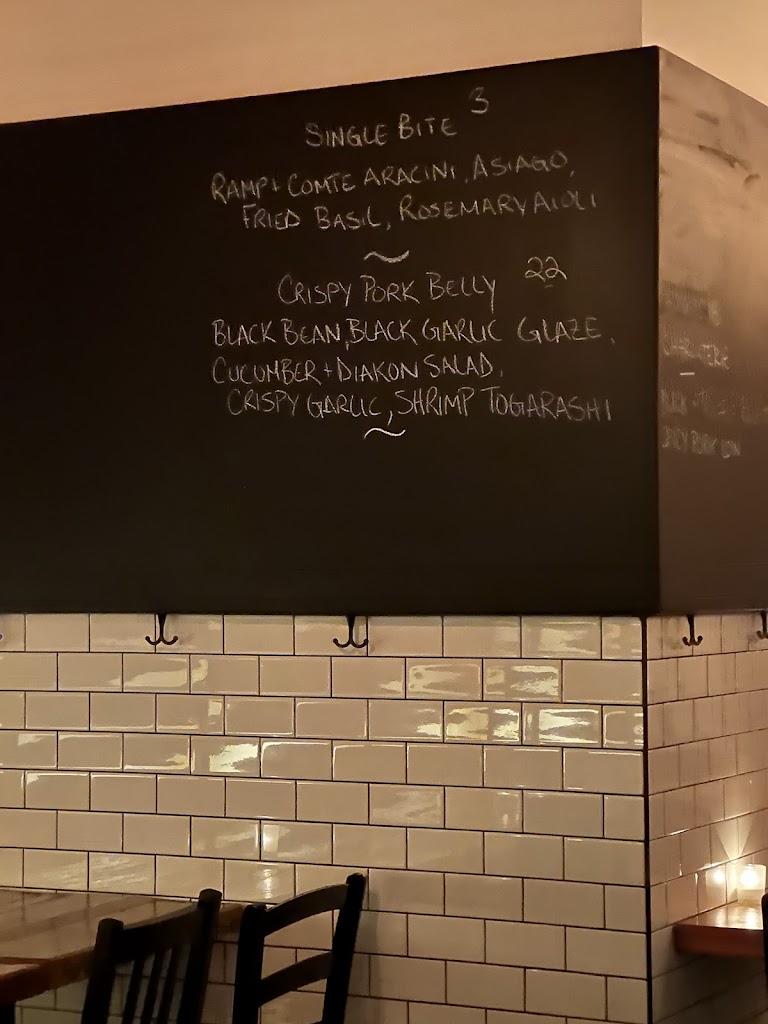 SINGLE BITE 3
RAMP + COMTE ARACINI, ASIAGO,
FRIED BASIL, ROSEMARY AIOLI
~
CRISPY PORK BELLY 22
BLACK BEAN, BLACK GARLIC GLAZE,
CUCUMBER + DIAKON SALAD,
CRISPY GARLIC, SHRIMP TOGARASHI
~